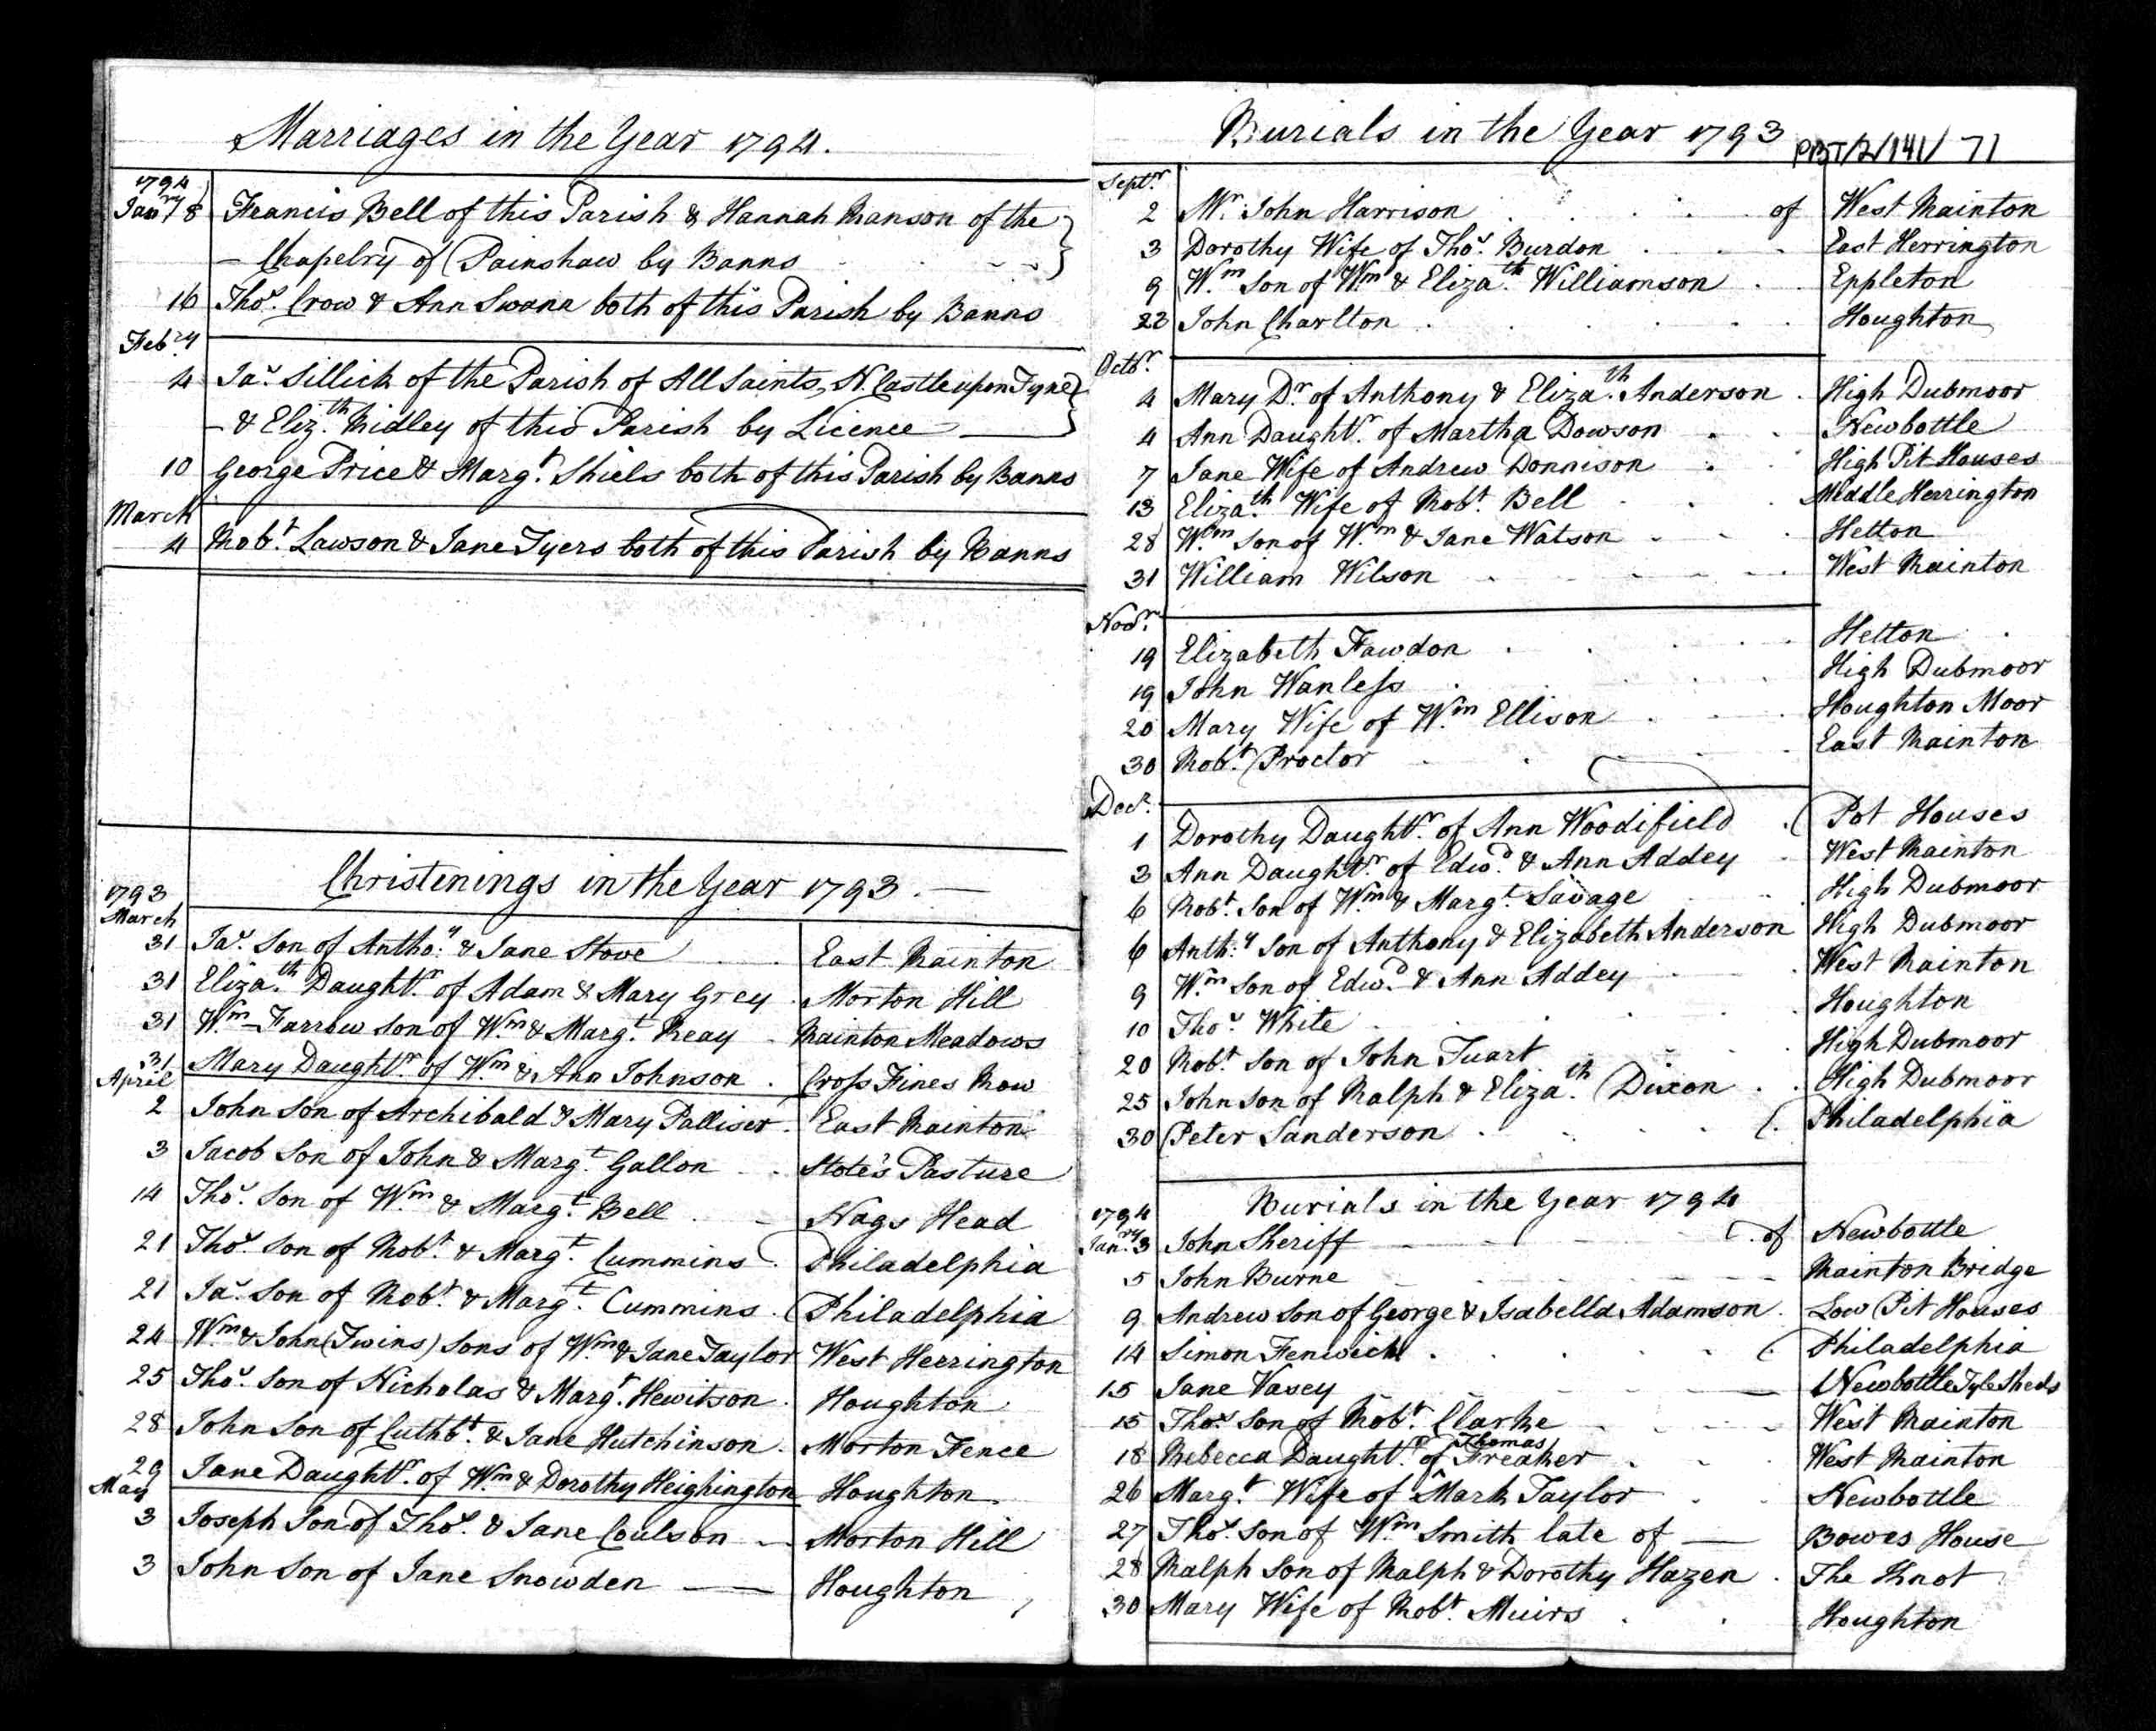 Marriages in the Year 1794.
1794
Janry 8 Francis Bell of this Parish & Hannah Ranson of the
- Chapelry of Painshaw by Banns
16 Thos. Crow & Ann Swann both of this Parish by Banns
Febry
4 Jas. Sillick of the Parish of All Saints, N. Castle upon Tyne
- & Elizth. Ridley of this Parish by Licence
10 George Price & Margt. Shiels both of this Parish by Banns
March
4 Robt. Lawson & Jane Tyers both of this Parish by Banns
Christenings in the Year 1793.
1793
March
31 Jas. Son of Anthoy. & Jane Stove East Rainton
31 Elizath. Daughtr. of Adam & Mary Grey Morton Hill
31 Wm. Farrow Son of Wm. & Margt. Reay Rainton Meadows
31 Mary Daughtr. of Wm. & Ann Johnson Cross Fines Row
April
2 John Son of Archibald & Mary Palliser East Rainton
3 Jacob Son of John & Margt. Gallon Stote's Pasture
14 Thos. Son of Wm. & Margt. Bell Nags Head
21 Thos. Son of Robt. & Margt. Cummins Philadelphia
21 Jas. Son of Robt. & Margt. Cummins Philadelphia
24 Wm. & John (Twins) Sons of Wm. & Jane Taylor West Herrington
25 Thos. Son of Nicholas & Margt. Hewitson Houghton
28 John Son of Cuthbt. & Jane Hutchinson Morton Fence
29 Jane Daughtr. of Wm. & Dorothy Heighington Houghton
May
3 Joseph Son of Thos. & Jane Coulson Morton Hill
3 John Son of Jane Snowden Houghton
Burials in the Year 1793
PBT/2/141/71
Septr.
2 Mr. John Harrison of West Rainton
3 Dorothy Wife of Thos. Burdon East Herrington
9 Wm. Son of Wm. & Elizath. Williamson Eppleton
22 John Charlton Houghton
Octbr.
4 Mary Dr. of Anthony & Elizath. Anderson High Dubmoor
4 Ann Daughtr. of Martha Dowson Newbottle
7 Jane Wife of Andrew Donnison High Pit Houses
13 Elizath. Wife of Robt. Bell Middle Herrington
28 Wm. Son of Wm. & Jane Watson Hetton
31 William Wilson West Rainton
Novr.
19 Elizabeth Fawdon Hetton
19 John Wanless High Dubmoor
20 Mary Wife of Wm. Ellison Houghton Moor
30 Robt. Proctor East Rainton
Decr.
1 Dorothy Daughtr. of Ann Woodifield Pot Houses
3 Ann Daughtr. of Edwd. & Ann Addey West Rainton
6 Robt. Son of Wm. & Margt. Savage High Dubmoor
6 Anth:y Son of Anthony & Elizabeth Anderson High Dubmoor
9 Wm. Son of Edwd. & Ann Addey West Rainton
10 Thos. White Houghton
20 Robt. Son of John Tuart High Dubmoor
25 John Son of Ralph & Elizath. Dixon High Dubmoor
30 Peter Sanderson Philadelphia
Burials in the Year 1794
1794
Janry. 3 John Sheriff of Newbottle
5 John Burne Rainton Bridge
9 Andrew Son of George & Isabella Adamson Low Pit Houses
14 Simon Fenwick Philadelphia
15 Jane Vasey Newbottle Tyle Sheds
15 Thos. Son of Robt. Clarke West Rainton
18 Rebecca Daughtr. of Thomas Freaker West Rainton
26 Margt. Wife of Mark Taylor Newbottle
27 Thos. Son of Wm. Smith late of Bowes House
28 Ralph Son of Ralph & Dorothy Hazen The Knot
30 Mary Wife of Robt. Muirs Houghton